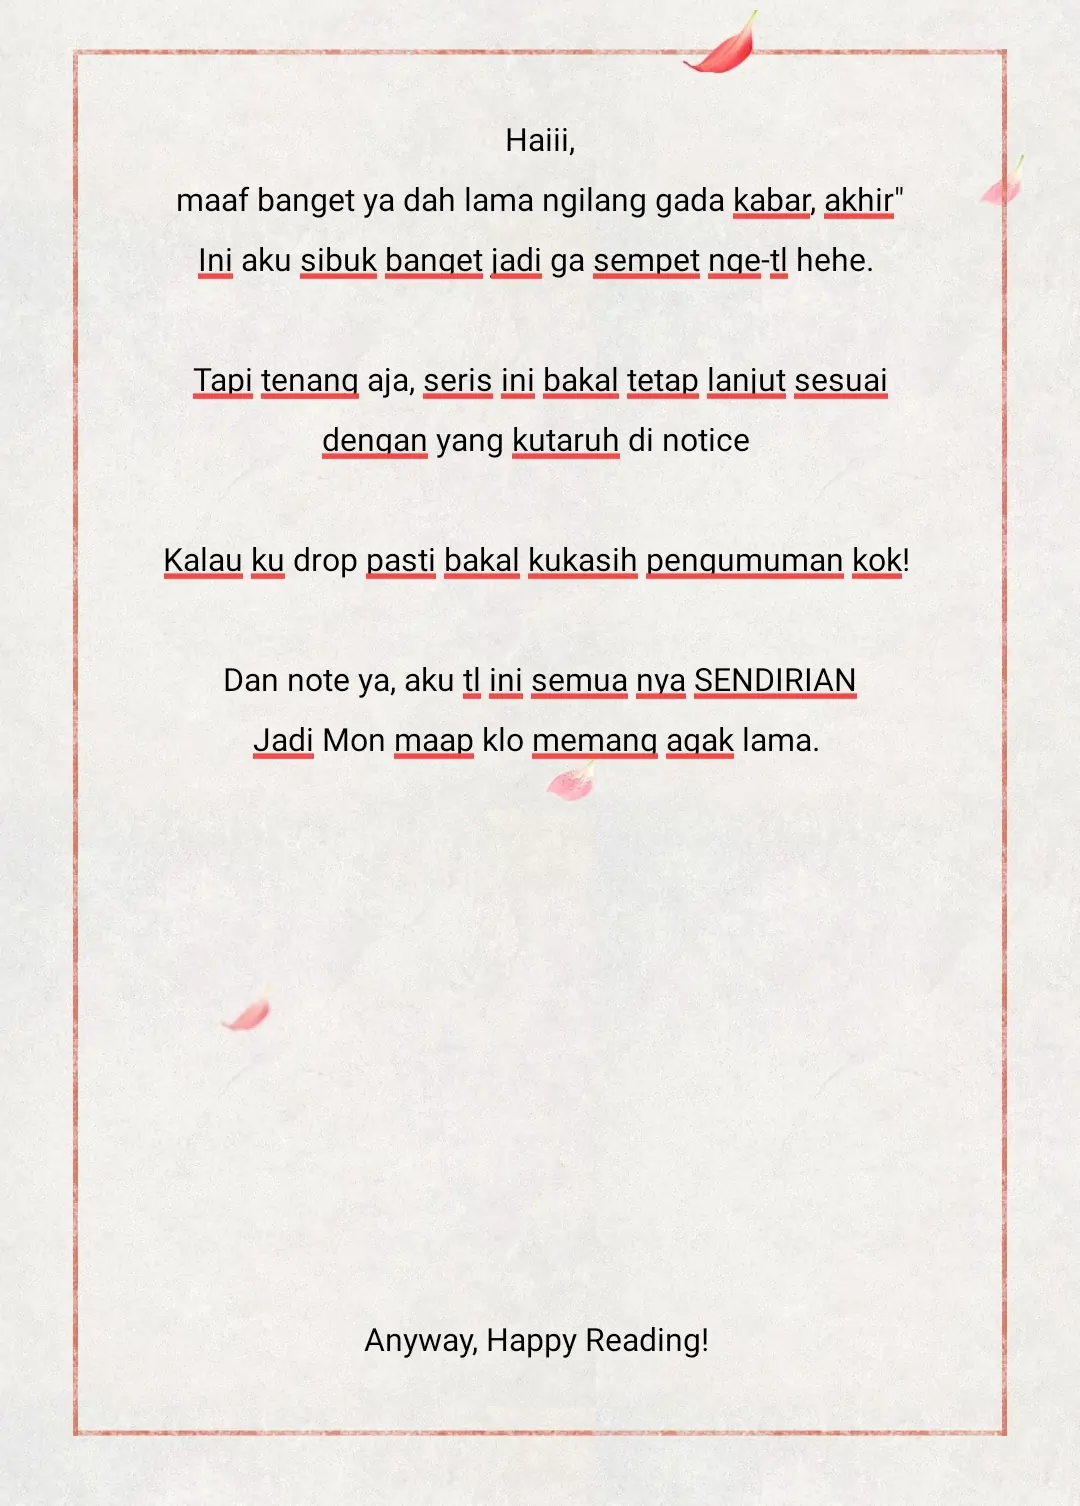 Haiii,
maaf banget ya dah lama ngilang gada kabar, akhir"
Ini aku sibuk banget jadi ga sempet nge-tl hehe.
Tapi tenang aja, seris ini bakal tetap lanjut sesuai
dengan yang kutaruh di notice
Kalau ku drop pasti bakal kukasih pengumuman kok!
Dan note ya, aku tl ini semua nya SENDIRIAN
Jadi Mon maap klo memang agak lama.
Anyway, Happy Reading!